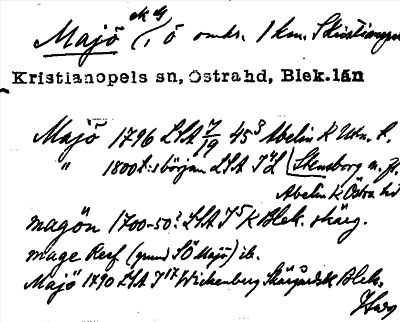 Majö M G
(1, ö omkr. 1 km. S Kristianopel
Kristianopels sn, Östra hd, Blek.län
Majö 1796 LSA 7/19 45³ Abelin K Utn. k.
" 1800t:s början LSA I⁴L Stensborg m. fl.
Abelin K Östra hd
magön 1700-50? LSA I⁵ K Blek. skärg.
mage Reef (grund SÖ Majö) ib.
Majö 1790 LSA I¹⁷ Wickenberg Skärgårdsk Blek.